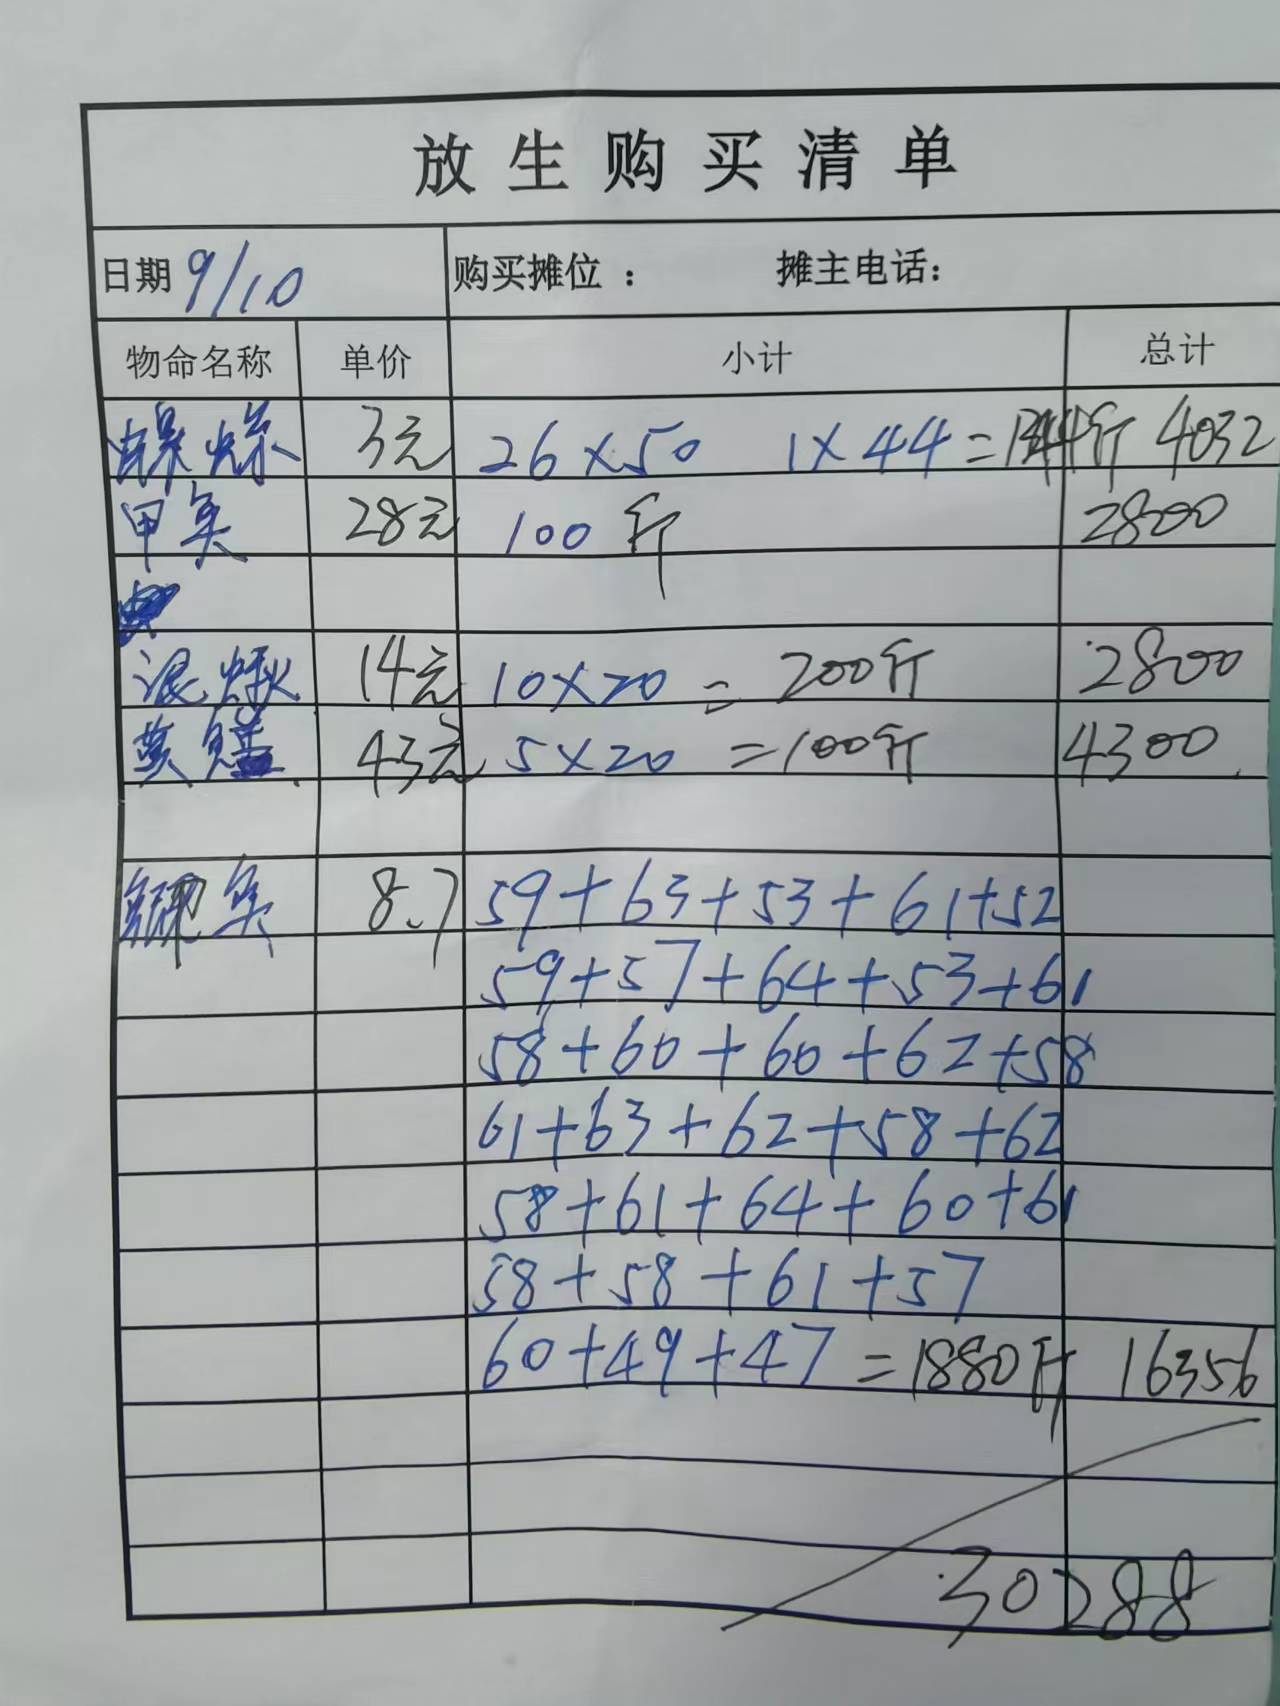 放生购买清单
日期 9/10 购买摊位： 摊主电话：
物命名称 单价 小计 总计
3元 26×50 1×44=1344斤 4032
甲鱼 28元 100斤 2800
混鳅 14元 10×20=200斤 2800
黄鳝 43元 5×20=100斤 4300
鱼 8.7 59+63+53+61+52
59+57+64+53+61
58+60+60+62+58
61+63+62+58+62
58+61+64+60+61
58+58+61+57
60+49+47=1880斤 16356
30288